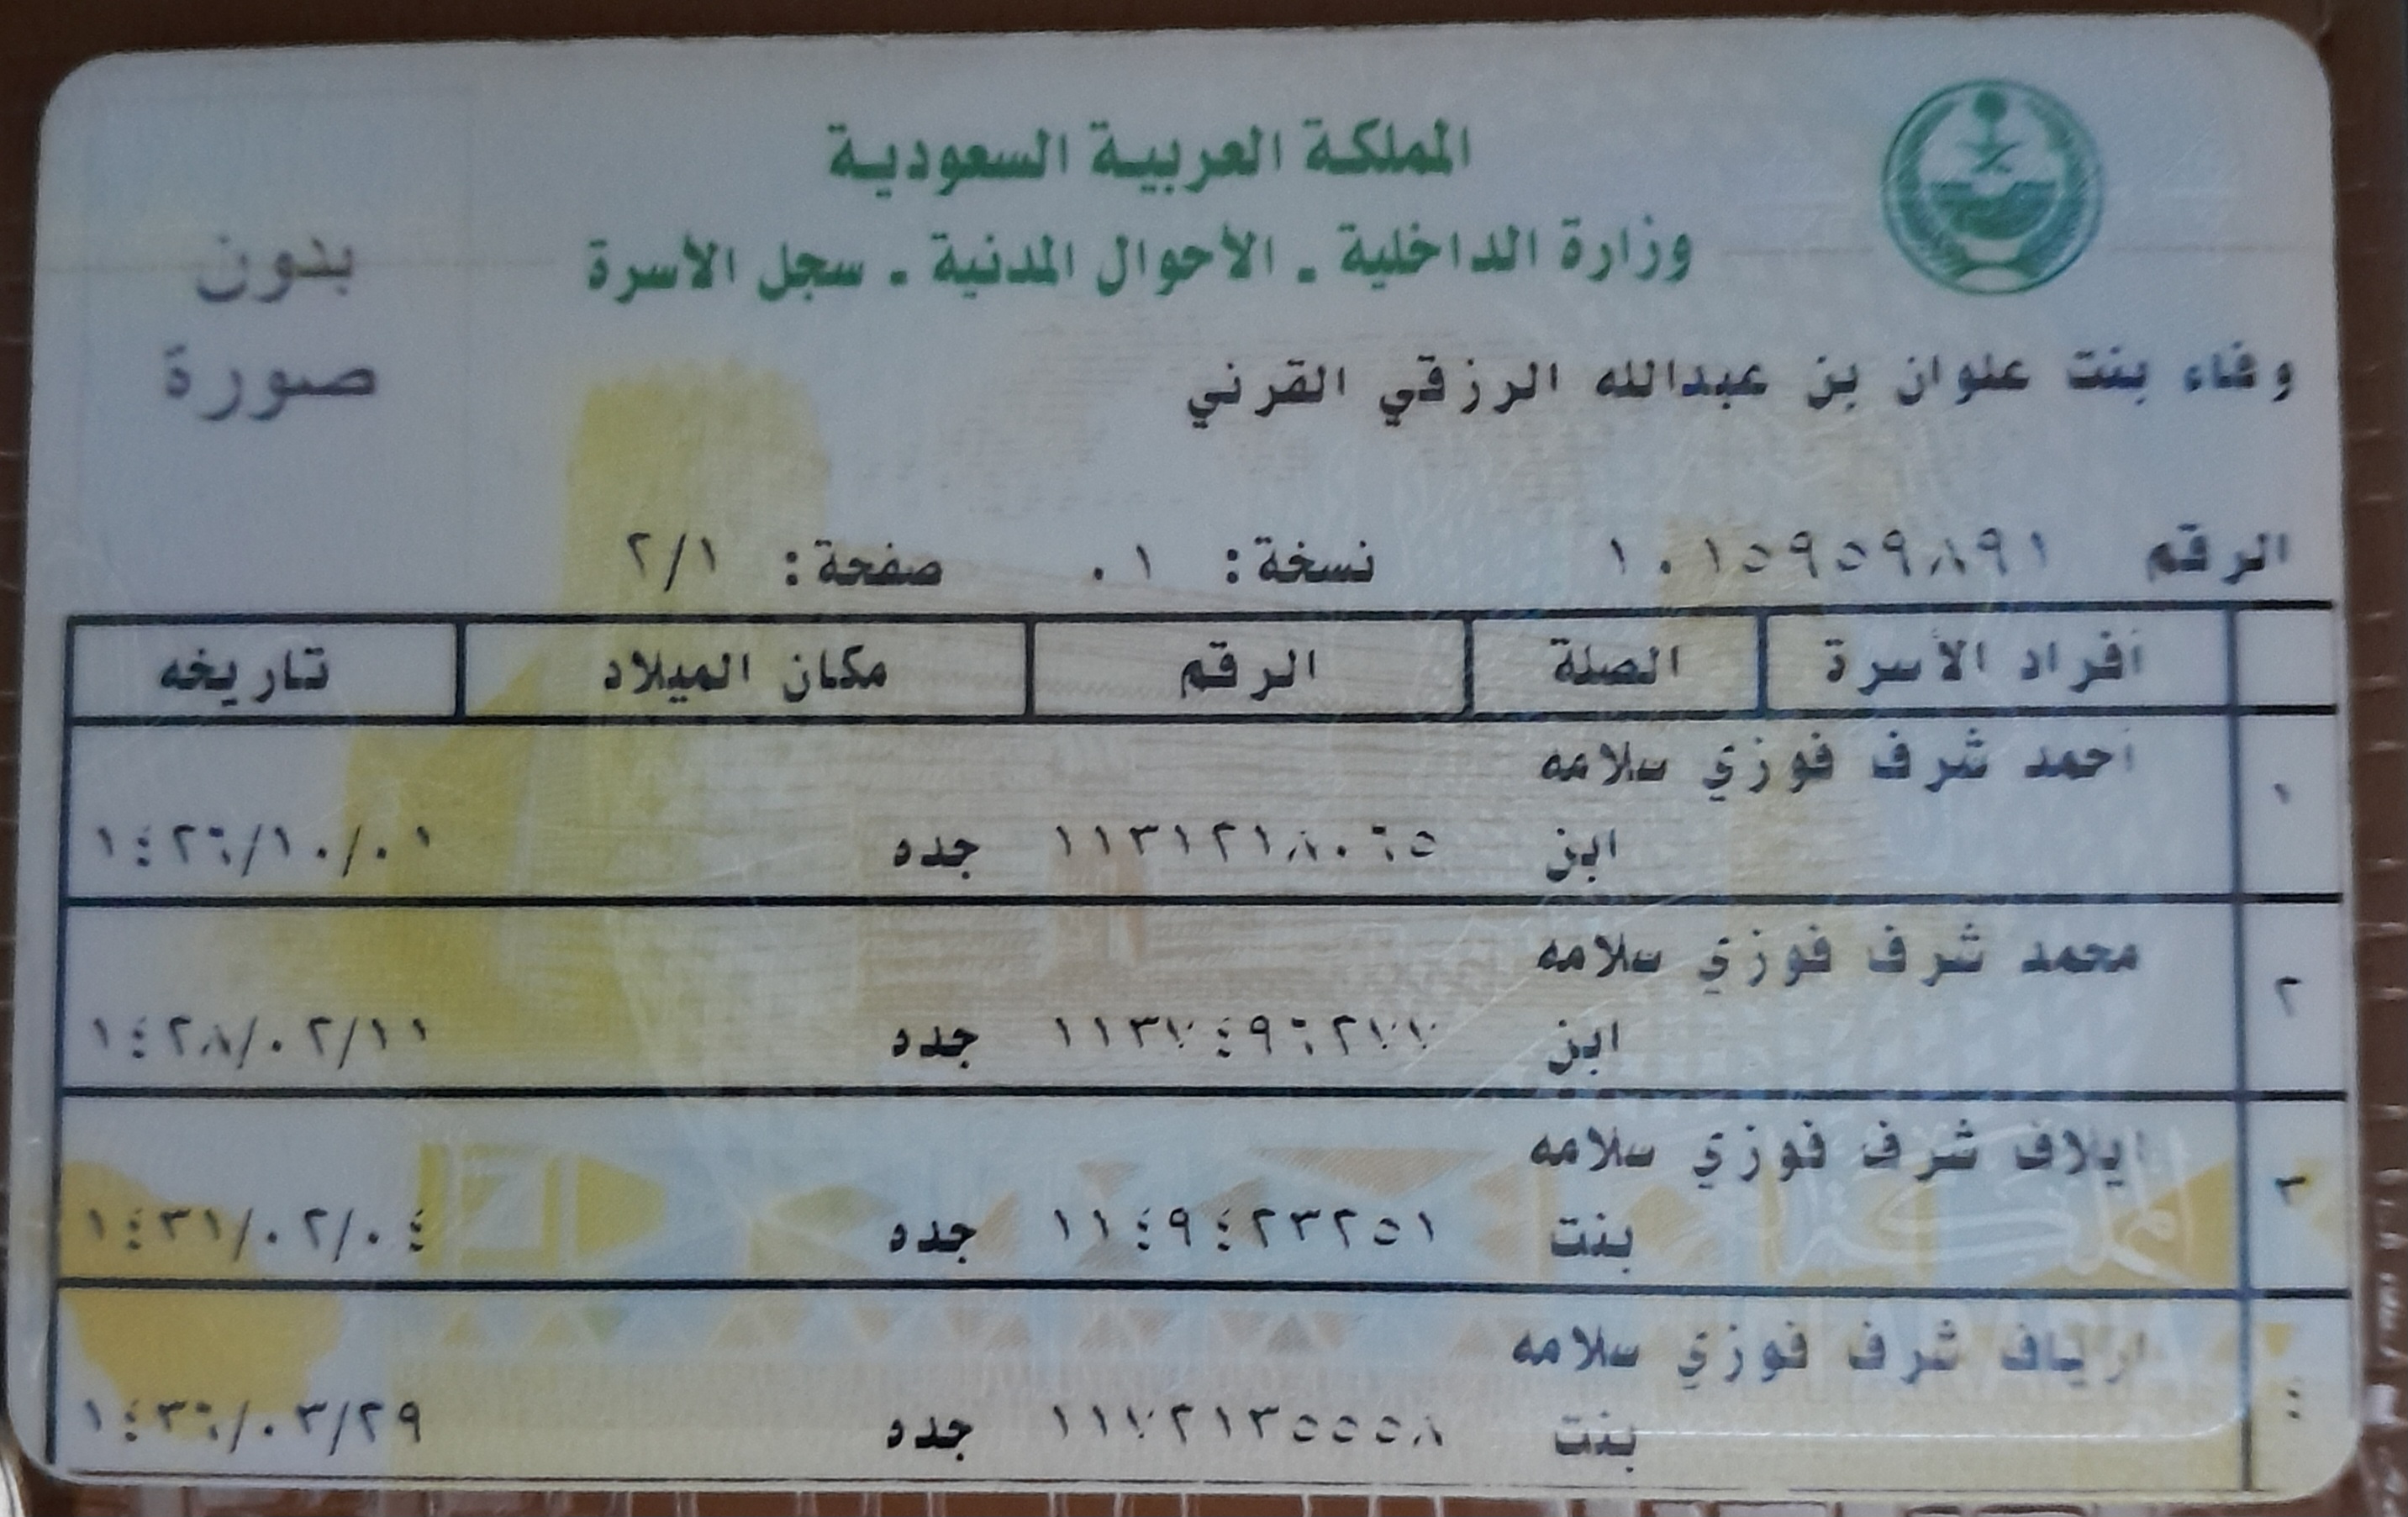 المملكة العربية السعودية
وزارة الداخلية - الأحوال المدنية - سجل الأسرة
بدون
صورة
وفاء بنت علوان بن عبدالله الرزقي القرني
الرقم ١٠١٥٩٥٩٨٩١ نسخة: ٠١ صفحة: ٢/١
أفراد الأسرة الصلة الرقم مكان الميلاد تاريخه
١ أحمد شرف فوزي سلامه
ابن ١١٣١٢١٨٠٦٥ جده ١٤٢٦/١٠/٠١
٢ محمد شرف فوزي سلامه
ابن ١١٣٧٤٩٦٢٧٧ جده ١٤٢٨/٠٢/١١
٣ ايلاف شرف فوزي سلامه
بنت ١١٤٩٤٢٣٢٥١ جده ١٤٣١/٠٢/٠٤
٤ ارياف شرف فوزي سلامه
بنت ١١٧٢١٣٥٥٥٨ جده ١٤٣٦/٠٣/٢٩